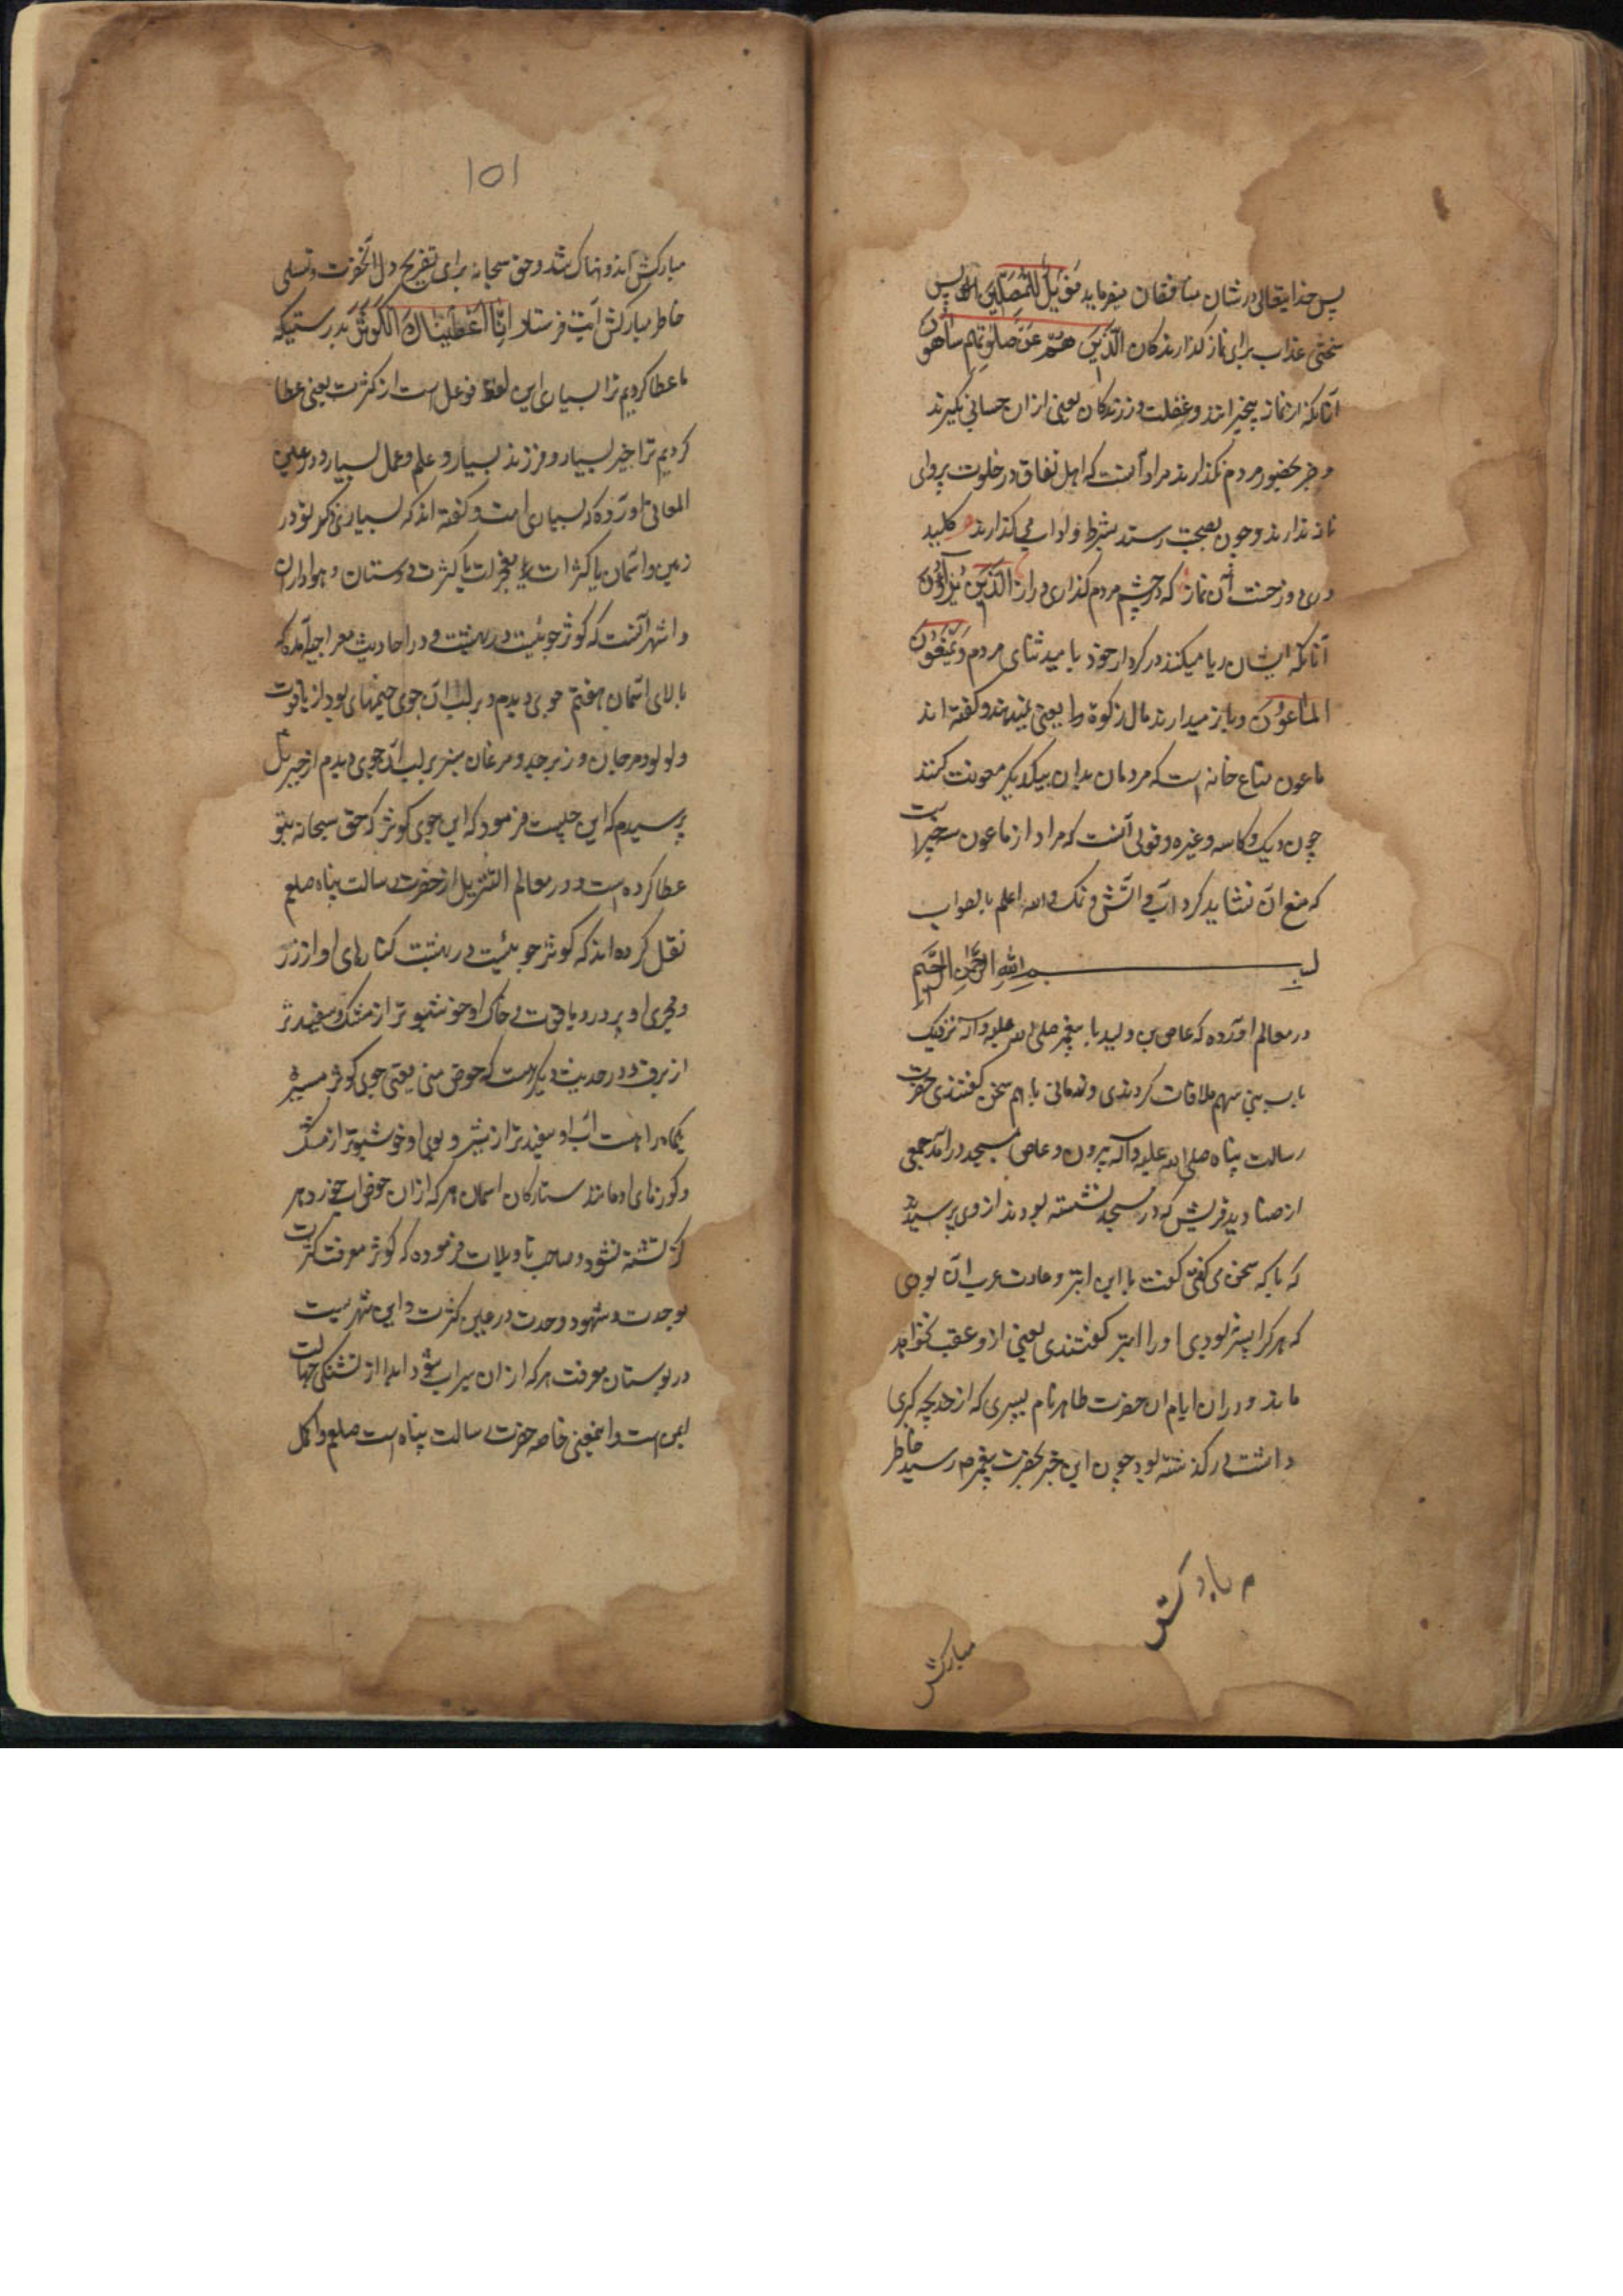 پس خدایتعالی در شان منافقان میفرماید فَوَیْلٌ لِّلْمُصَلِّینَ پس
سختی عذاب برای نماز گذارندکان الَّذِینَ هُمْ عَن صَلٰوتِهِم سَاهُونَ
آنانکه از نماز بیخبرانند و غفلت ورزندکان یعنی ازان حسابی نگیرند
و جز بحضور مردم نگذارند مراد آنست که اهل نفاق در خلوت پروای
نماز ندارند و چون بصحبت رسند بشرط و اداب می گذارند کلید
در دوزخست آن نماز که در چشم مردم گذاری دراز الَّذِینَ یُرَآؤُنَ
آنانکه ایشان ریا میکنند در کردار خود بامید ثنای مردم وَیَمْنَعُونَ
المَاعُونَ و باز میدارند مال زکوة را یعنی نمیدهند و گفته اند
ماعون متاع خانه است که مردمان بدان بیکدیگر معونت کنند
چون دیک و کاسه و غیره و قولی آنست که مراد از ماعون سه چیزاست
که منع آن نشاید کرد آب و آتش و نمک والله اعلم بالصواب
بسم الله الرحمن الرحیم
در معالم آورده که عاص بن ولید با پیغمبر صلی الله علیه وآله نزدیک
باب بنی سهم ملاقات کردندی و زمانی باهم سخن گفتندی حضرت
رسالت پناه صلی الله علیه وآله بیرون و عاص بمسجد درآمد جمعی
از صنادید قریش که در مسجد نشسته بودند از وی پرسیدند
که با که سخن می گفتی گفت با این ابتر و عادت عرب آن بودی
که هرکرا پسر نبودی او را ابتر گفتندی یعنی ازو عقب نخواهد
ماند و دران ایام ان حضرت طاهر نام پسری که از خدیجه کبری
داشت درگذشته بود چون این خبر بحضرت پیغمبر رسید خاطر
مبارکش
مبارکش
۱۵۱
مبارکش اندوهناک شد و حق سبحانه برای تفریح دل آنحضرت و تسلی
خاطر مبارکش آیت فرستاد اِنَّا اَعْطَیْنَاكَ الْكَوْثَرَ بدرستیکه
ما عطا کردیم ترا بسیاری این لفظ فوعل است از کثرت یعنی عطا
کردیم ترا خیر بسیار و فرزند بسیار و علم و عمل بسیار و در عین
المعانی آورده که بسیاری امت و گفته اند که بسیاری ذکر تو در
زمین و آسمان یا کثرات معجزات یا کثرت دوستان و هواداران
و اشهر آنست که کوثر جوئیست در بهشت و در احادیث معراجیه آمده که
بالای آسمان هفتم جوی دیدم و بر لب آن جوی خیمهای بود از یاقوت
و لولو و مرجان و زبرجد و مرغان سبز بر لب آن جوی دیدم از جبرئیل
پرسیدم که این چیست فرمود که این جوی کوثر که حق سبحانه بتو
عطا کرده است و در معالم التنزیل از حضرت رسالت پناه صلعم
نقل کرده اند که کوثر جوئیست در بهشت کنارهای او از زر
و مجری او بر در و یاقوت و خاک او خوشبوتر از مشک و سفیدتر
از برف و در حدیث دیگر است که حوض من یعنی جوی کوثر مسیره
یکماه راهست آب او سفیدتر از شیر و بوی او خوشبوتر از مشک
و کوزهای او مانند ستارکان آسمان هر که ازان حوض آب خورد هر
گز تشنه نشود و صاحب تاویلات فرموده که کوثر معرفت کثرت
بوحدت و شهود وحدت در عین کثرت و این نهریست
در بوستان معرفت هرکه ازان سیراب شود ابدا از تشنگی جهالت
ایمن است و اینمعنی خاصه حضرت رسالت پناه است صلعم و اکمل